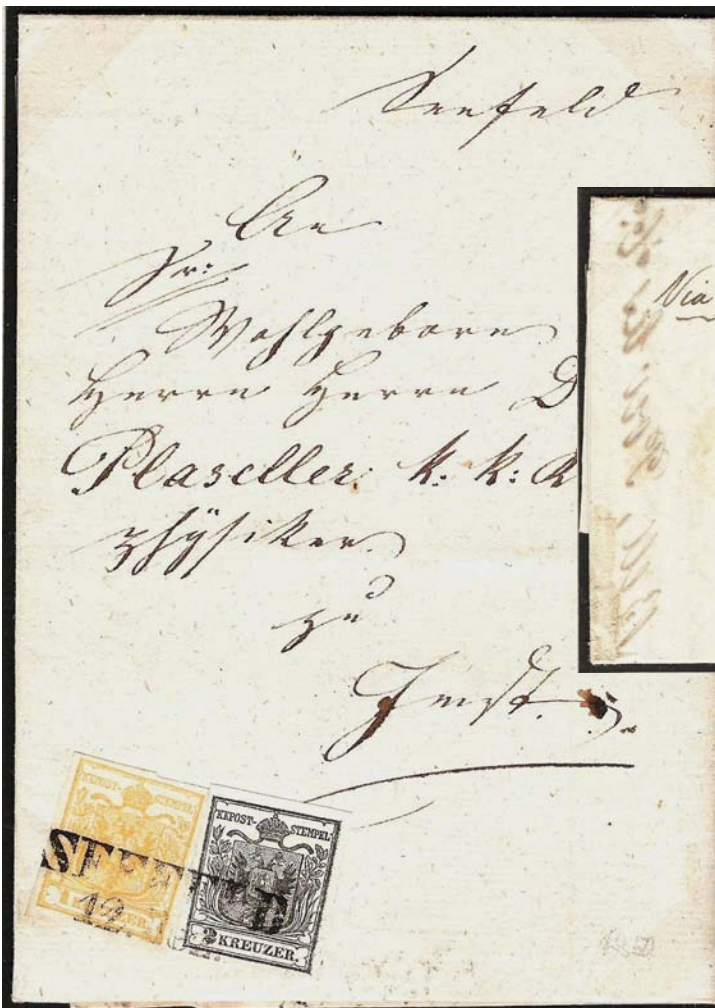 Seefeld
An
Sr:
Wohlgeborn
Herrn Herrn D
Plaseller k: k:
Physiker
zu
Imst.
Via
KKPOST-STEMPEL
1 KREUZER
KKPOST-STEMPEL
2 KREUZER.
SEEFELD
12.